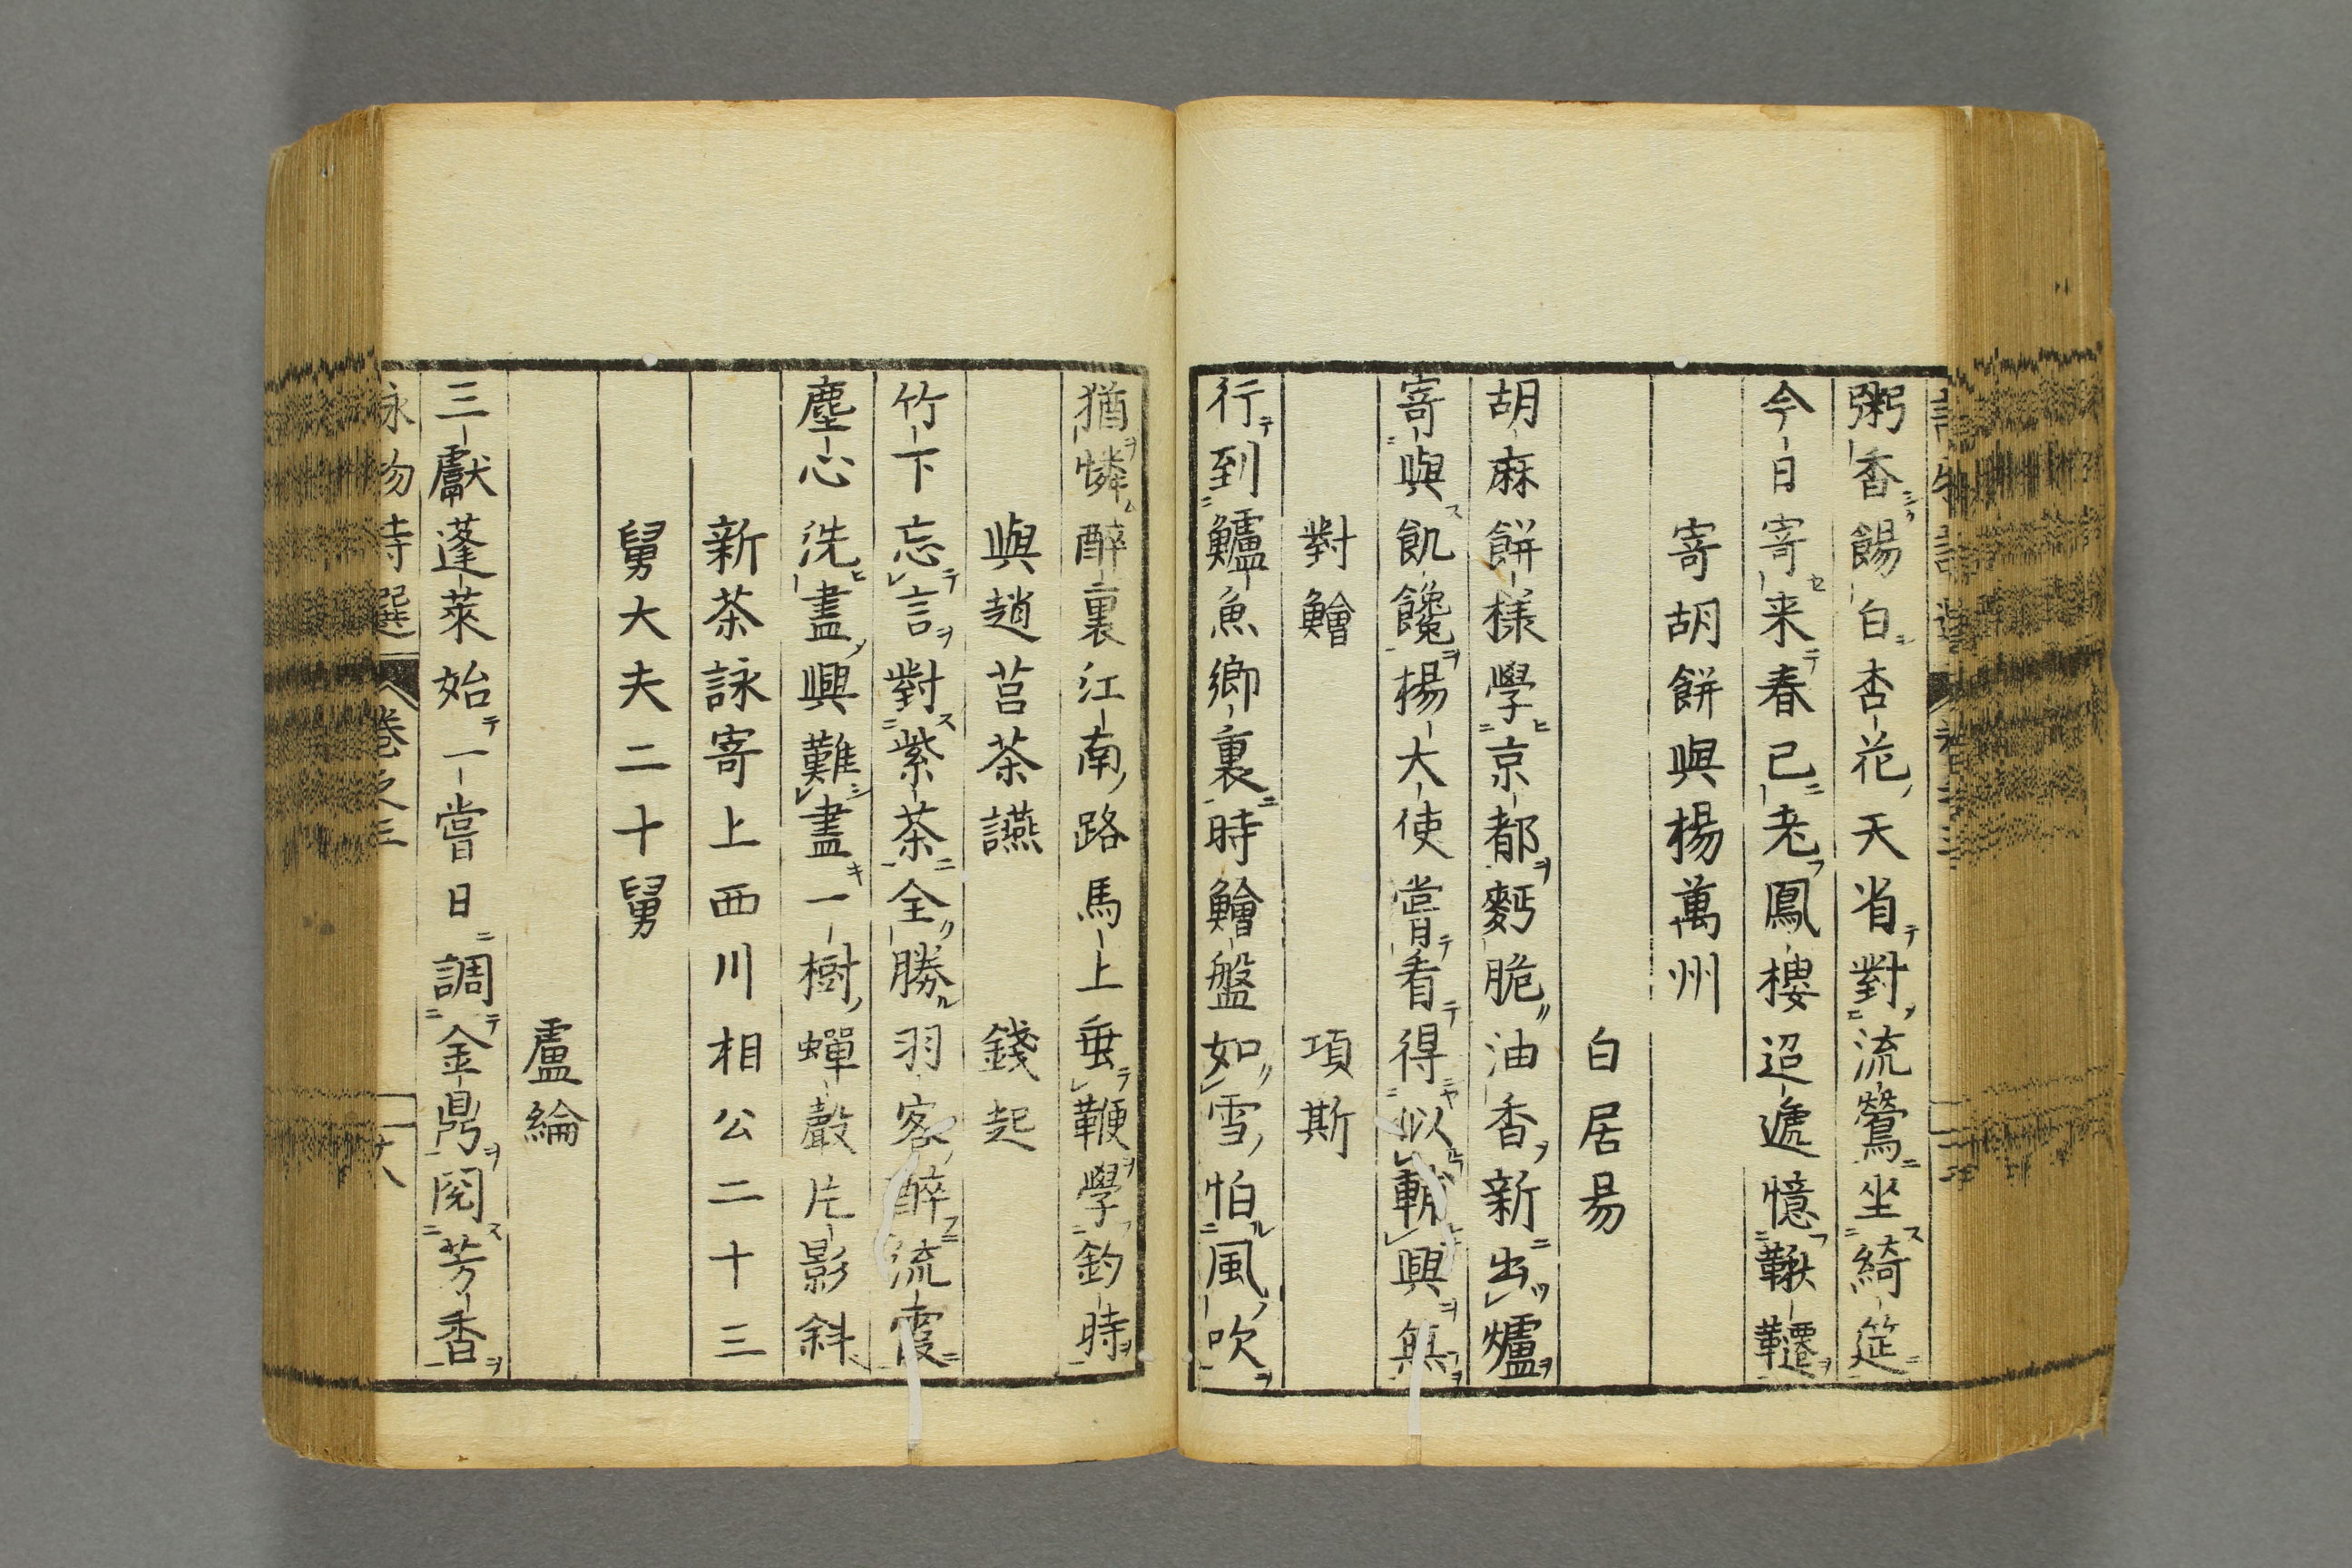 粥香餳白杏花天省對流鶯坐綺筵
今日寄来春已老鳳樓迢遞憶鞦韆
寄胡餅與楊萬州
白居易
胡麻餅様學京都麪脆油香新出爐
寄與飢饞楊大使嘗看得似輔興無
對鱠
項斯
行到鱸魚鄉裏時鱠盤如雪怕風吹
猶憐醉裏江南路馬上垂鞭學釣時
與趙莒茶讌
錢起
竹下忘言對紫茶全勝羽客醉流霞
塵心洗盡興難盡一樹蟬聲片影斜
新茶詠寄上西川相公二十三
舅大夫二十舅
盧綸
三獻蓬萊始一嘗日調金鼎閱芳香
詠物詩選
卷之三
十八